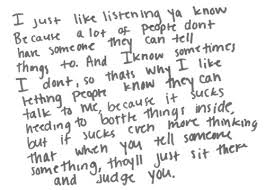 I just like listening ya know
Because a lot of people dont
have someone they can tell
things to. And I know sometimes
I dont, so thats why I like
letting people know they can
talk to me, because it sucks
needing to bottle things inside,
but it sucks even more thinking
that when you tell someone
something, theyll just sit there
and judge you.